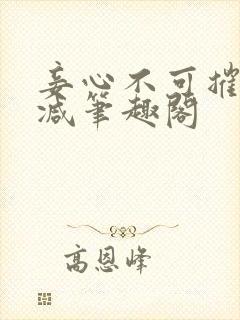 妾心不可摧
减笔趣阁
高恩峰